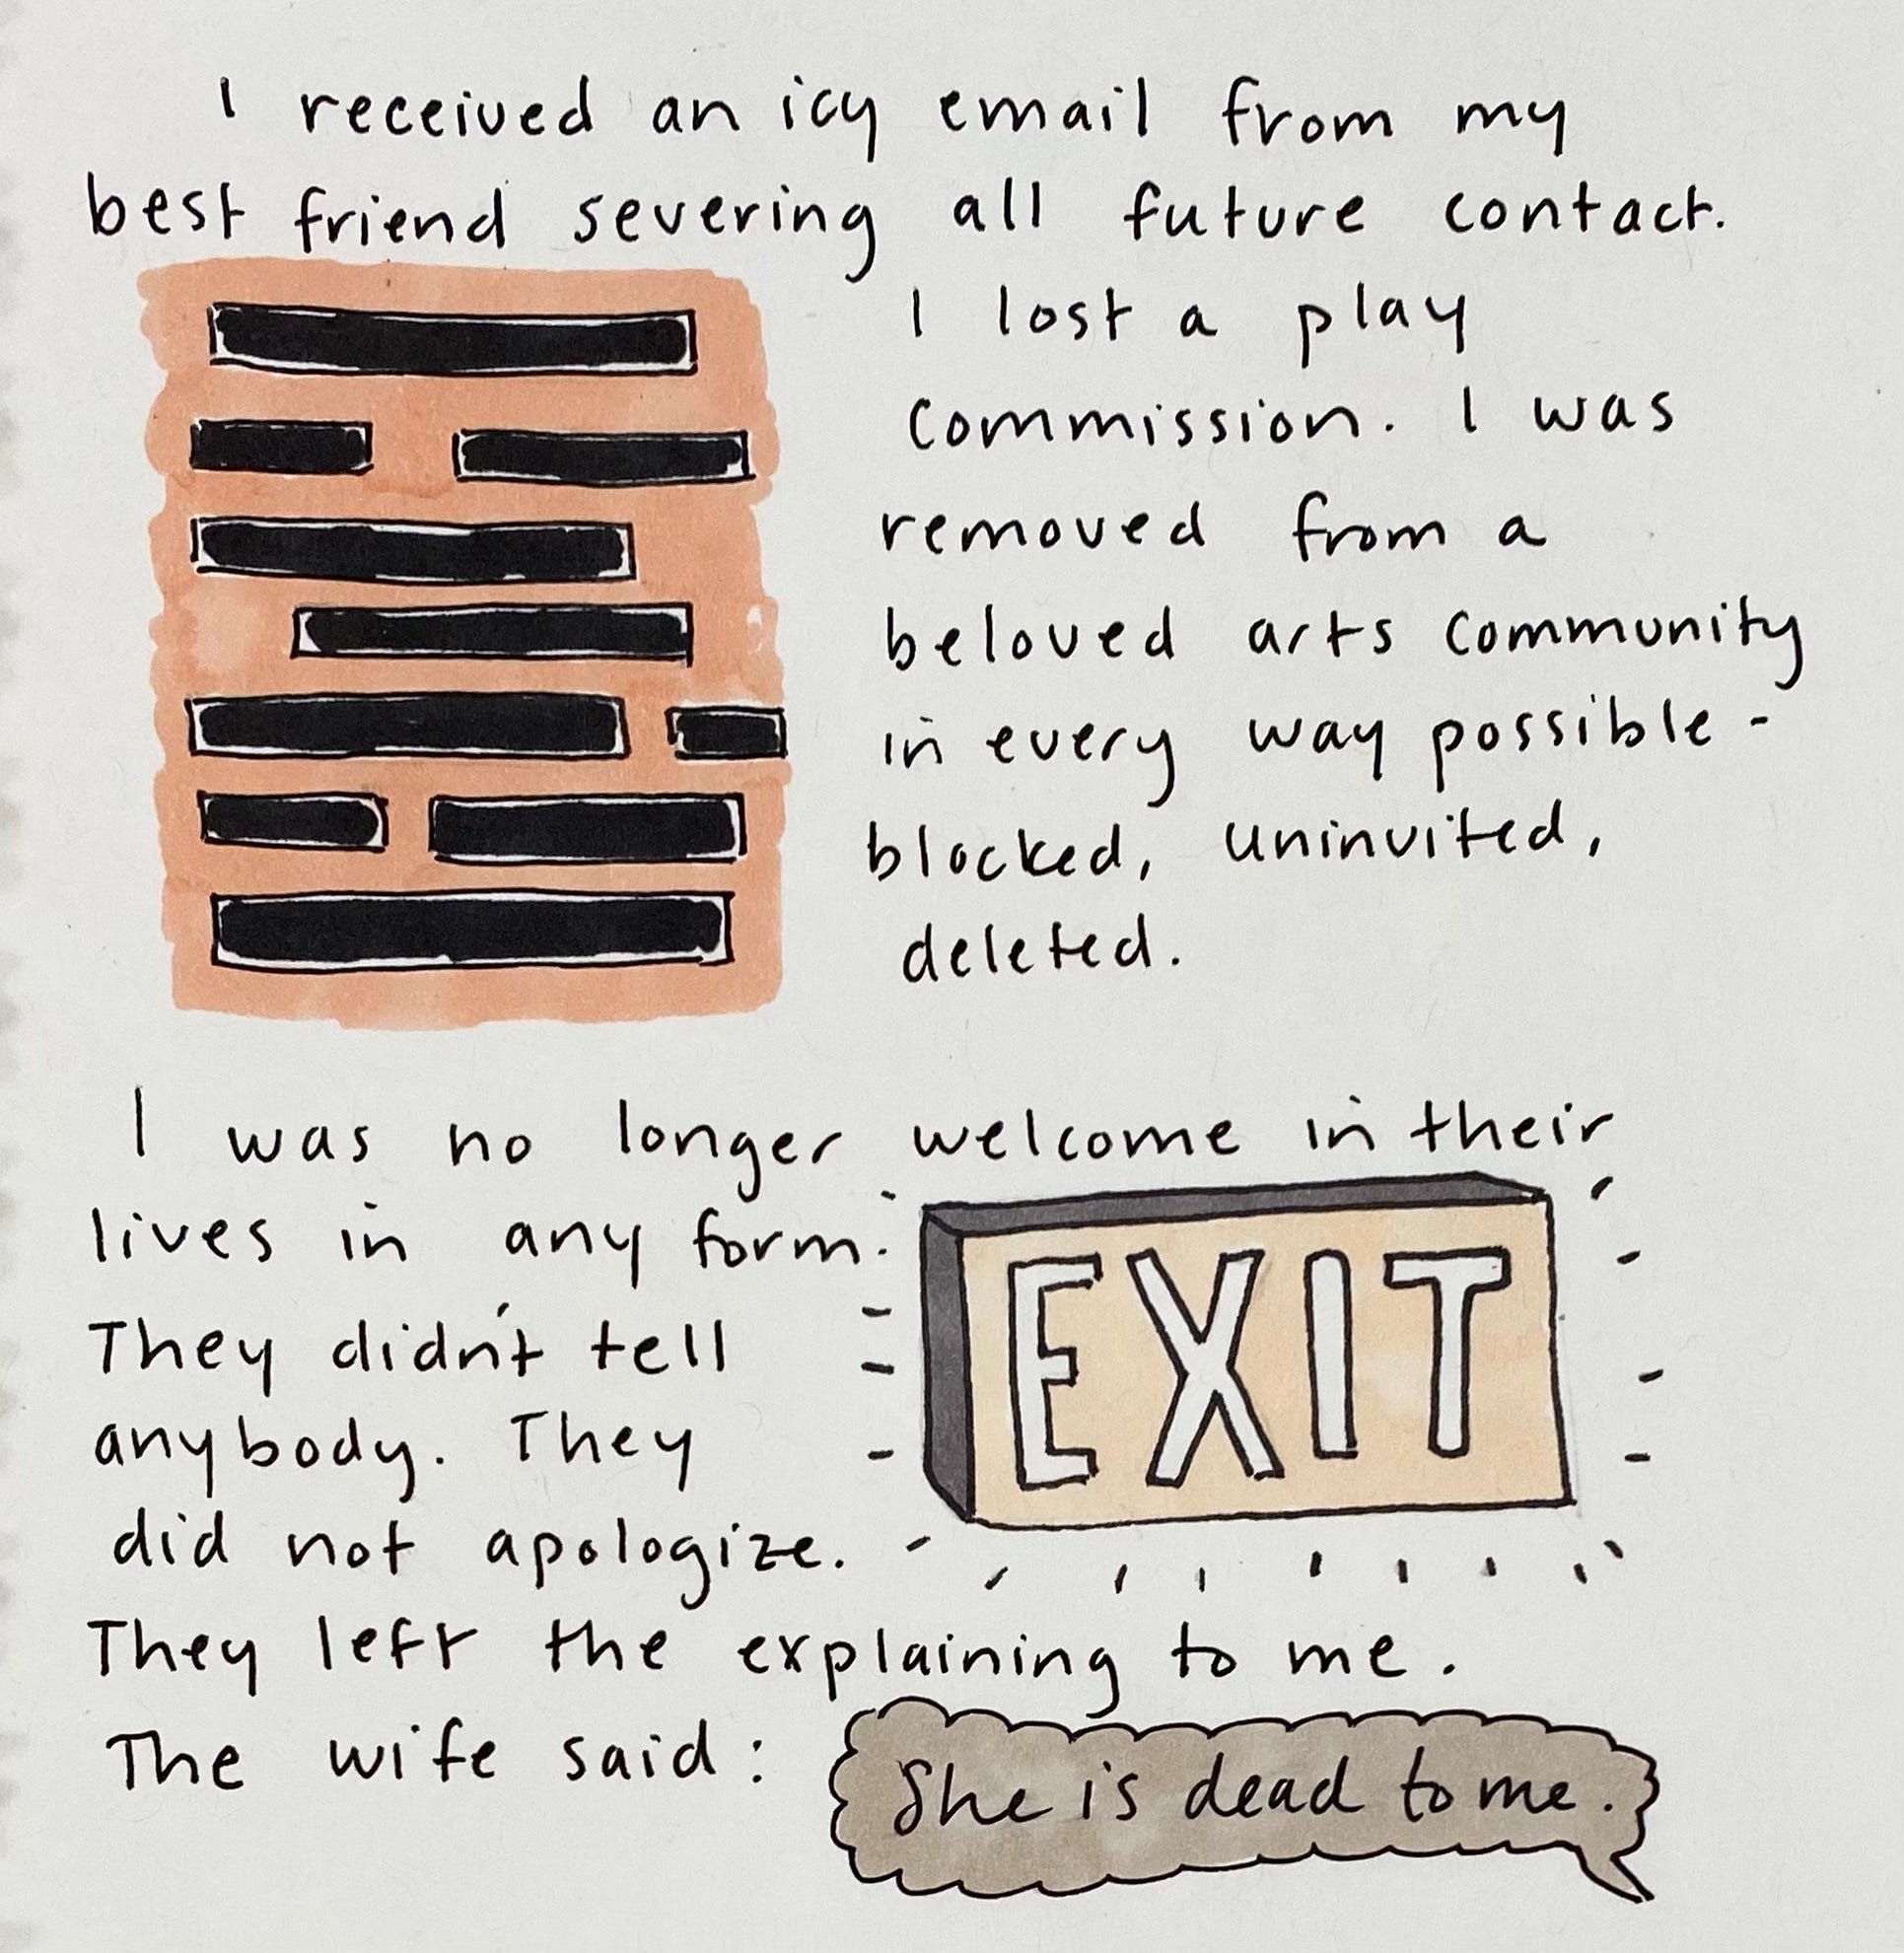 I received an icy email from my
best friend severing all future contact.
I lost a play
commission. I was
removed from a
beloved arts community
in every way possible -
blocked, uninvited,
deleted.
I was no longer welcome in their
lives in any form.
EXIT
They didn't tell
anybody. They
did not apologize.
They left the explaining to me.
The wife said:
She is dead to me.